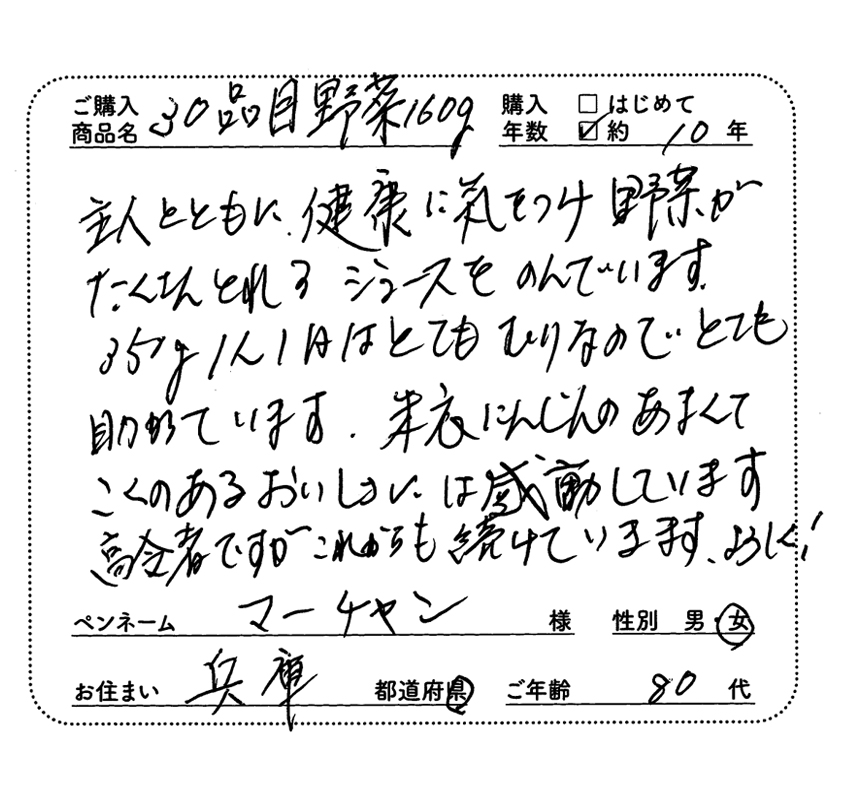 ご購入商品名 30品目野菜160g 購入年数 □はじめて ☑約 10年
主人とともに、健康に気をつけ野菜が
たくさんとれるジュースをのんでいます。
350g1人1日はとてもむりなのでとても
助かっています。朱衣にんじんのあまくて
こくのあるおいしさには感動しています
高令者ですがこれからも続けていきます、よろしく!
ペンネーム マーチャン 様 性別 男・女
お住まい 兵庫 都道府県 ご年齢 80代